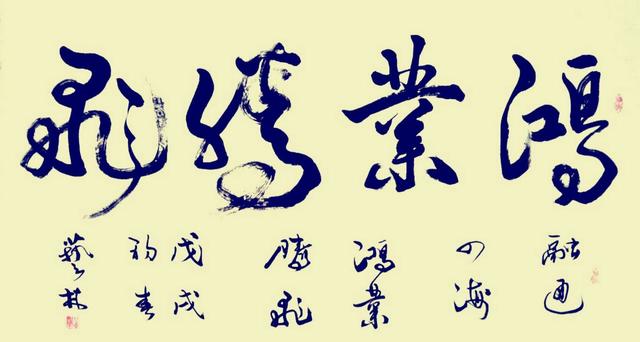 鸿業腾飛
融通
四海
鸿業
腾飛
戊戌
初春
藝林